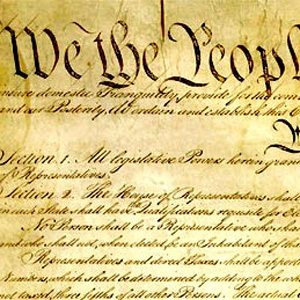 We the People
insure domestic Tranquility, provide for the com
and our Posterity, do ordain and establish this C
Section. 1. All legislative Powers herein gran
of Representatives.
Section. 2. The House of Representatives shal
in each State shall have the Qualifications requisite for E
No Person shall be a Representative who sha
and who shall not, when elected, be an Inhabitant of tha
Representatives and direct Taxes shall be appor
Numbers, which shall be determined by adding to the
not taxed, three fifths of all other Persons. The actual